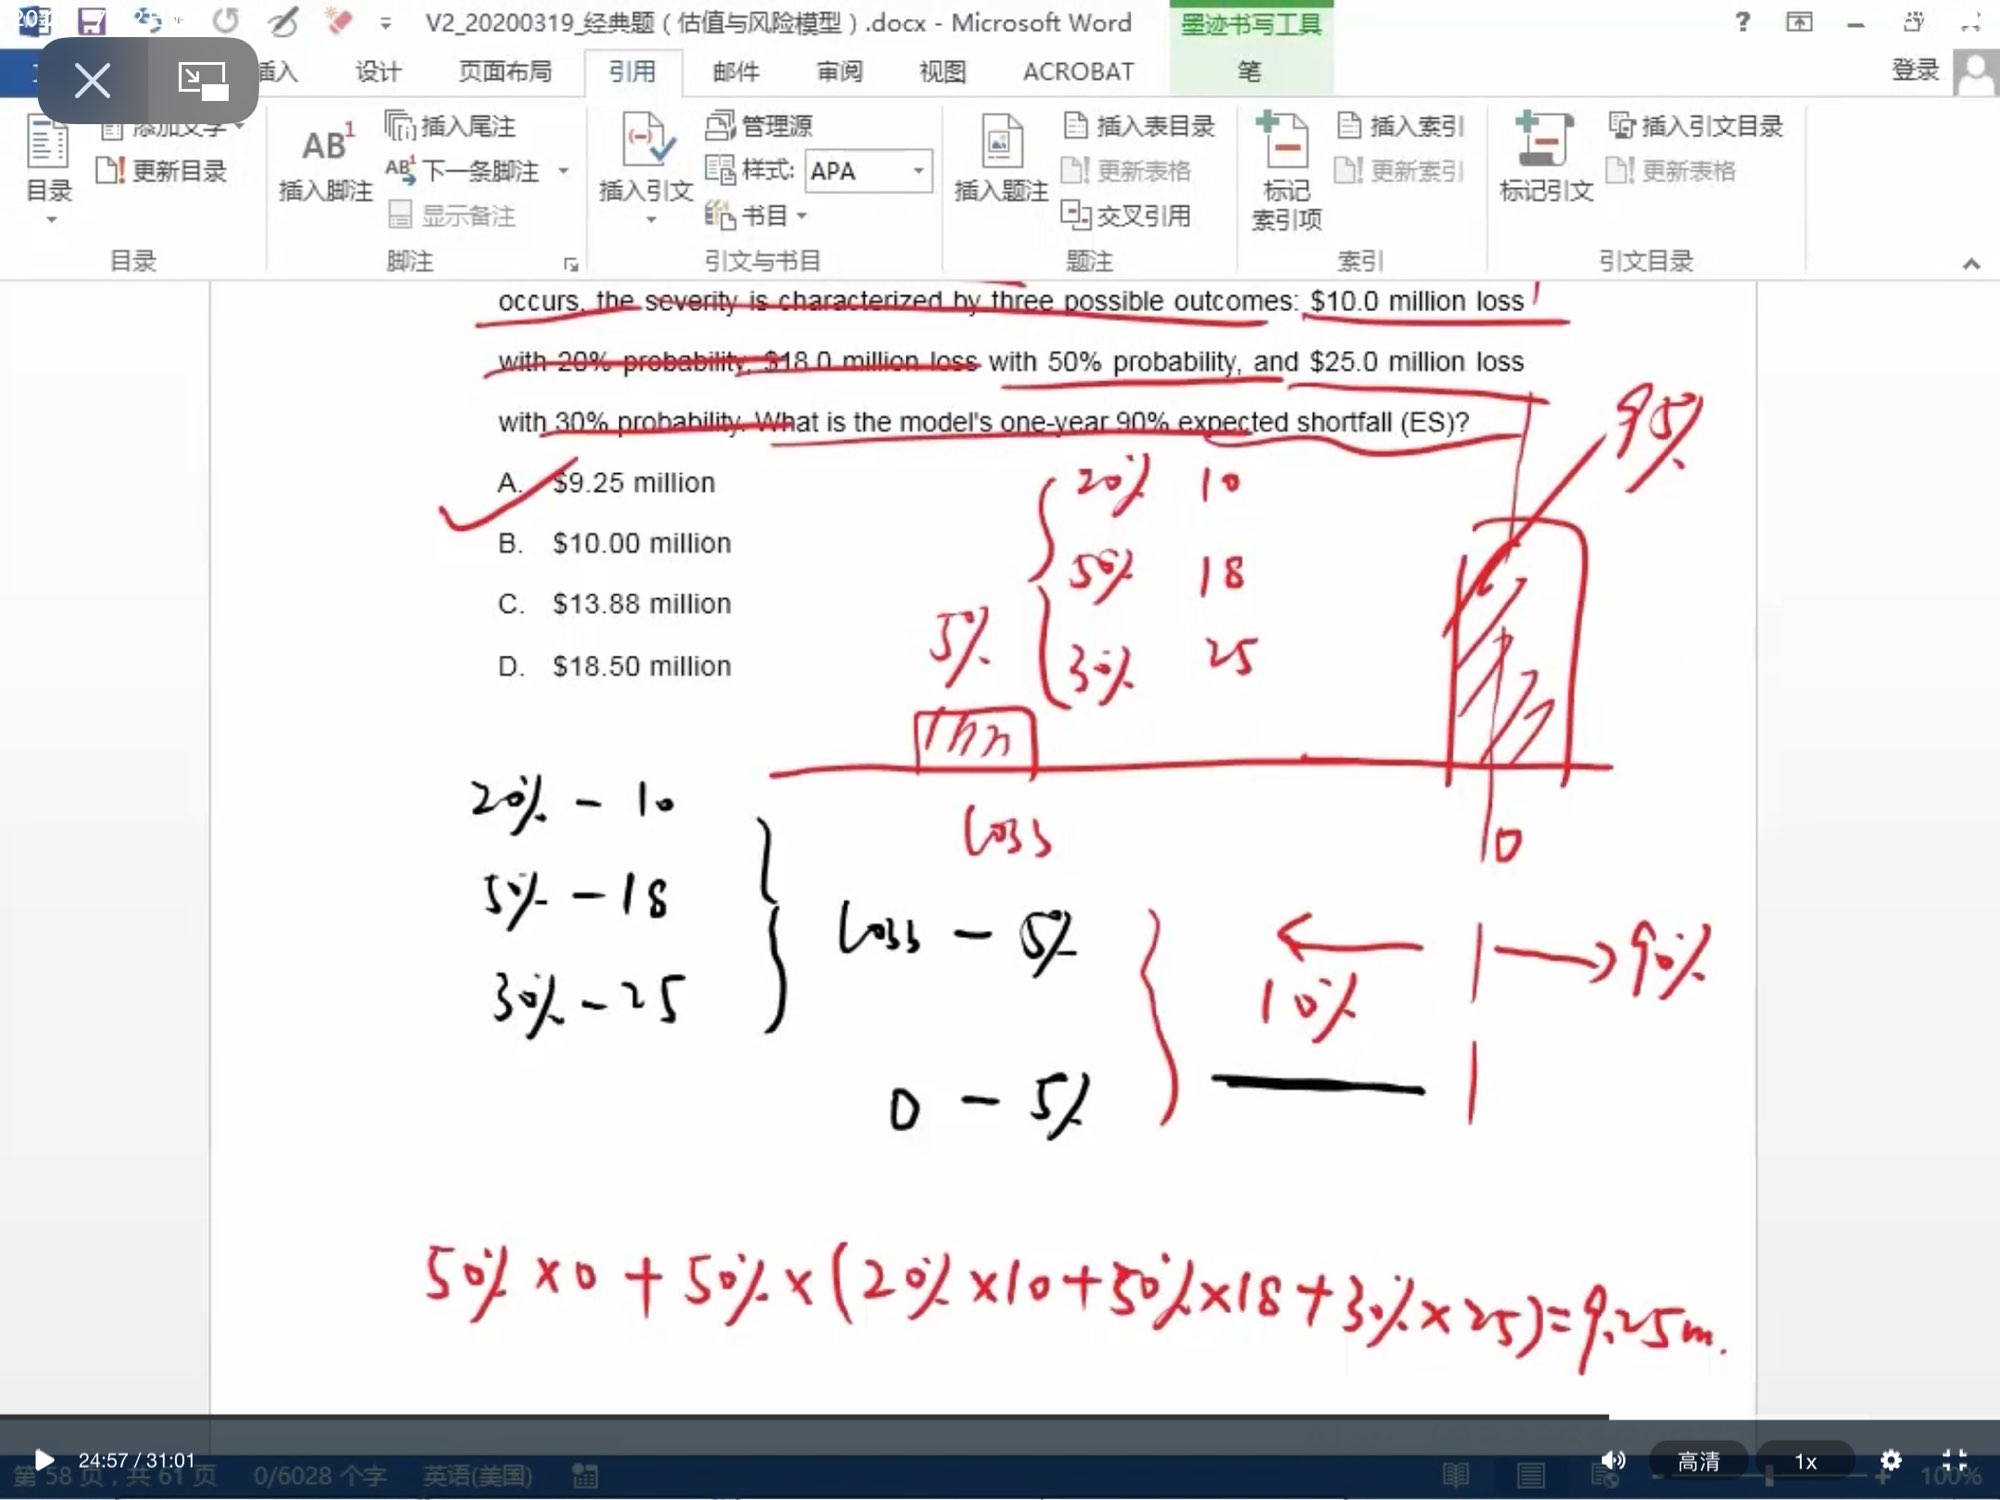 V2_20200319_经典题（估值与风险模型）.docx - Microsoft Word
墨迹书写工具
插入 设计 页面布局 引用 邮件 审阅 视图 ACROBAT 笔 登录
添加文字 插入尾注 管理源 插入表目录 插入索引 插入引文目录
更新目录 下一条脚注 样式: APA 更新表格 更新索引 更新表格
目录 AB1 插入脚注 显示备注 插入引文 书目 插入题注 交叉引用 标记索引项 标记引文
目录 脚注 引文与书目 题注 索引 引文目录
occurs, the severity is characterized by three possible outcomes: $10.0 million loss
with 20% probability, $18.0 million loss with 50% probability, and $25.0 million loss
with 30% probability. What is the model's one-year 90% expected shortfall (ES)?
95%
A. $9.25 million
B. $10.00 million
C. $13.88 million
D. $18.50 million
20% 10
50% 18
30% 25
5%
loss
0
20% - 10
5% - 18
30% - 25
loss - 5%
0 - 5%
10%
90%
50% × 0 + 50% × (20% × 10 + 50% × 18 + 30% × 25) = 9.25m.
24:57 / 31:01
高清 1x
第 58 页，共 61 页 0/6028 个字 英语(美国) 100%